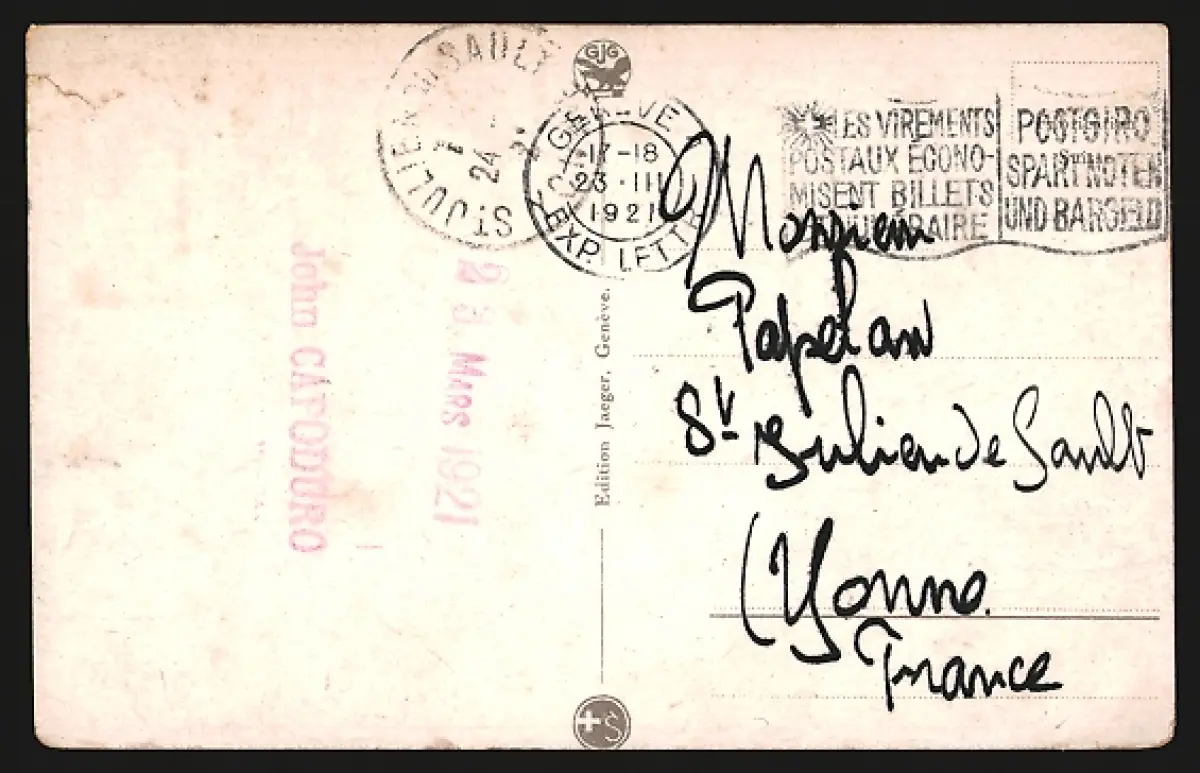 GJG
ST JULIEN DU SAULT
24
GENÈVE 1
17-18
23·III
1921
EXP. LETTR
LES VIREMENTS
POSTAUX ÉCONO-
MISENT BILLETS
ET NUMÉRAIRE
POSTGIRO
SPART NOTEN
UND BARGELD
John CAPODURO
23 MARS 1921
Edition Jaeger, Genève.
Monsieur
Papelard
St Julien de Sault
(Yonne
France
S